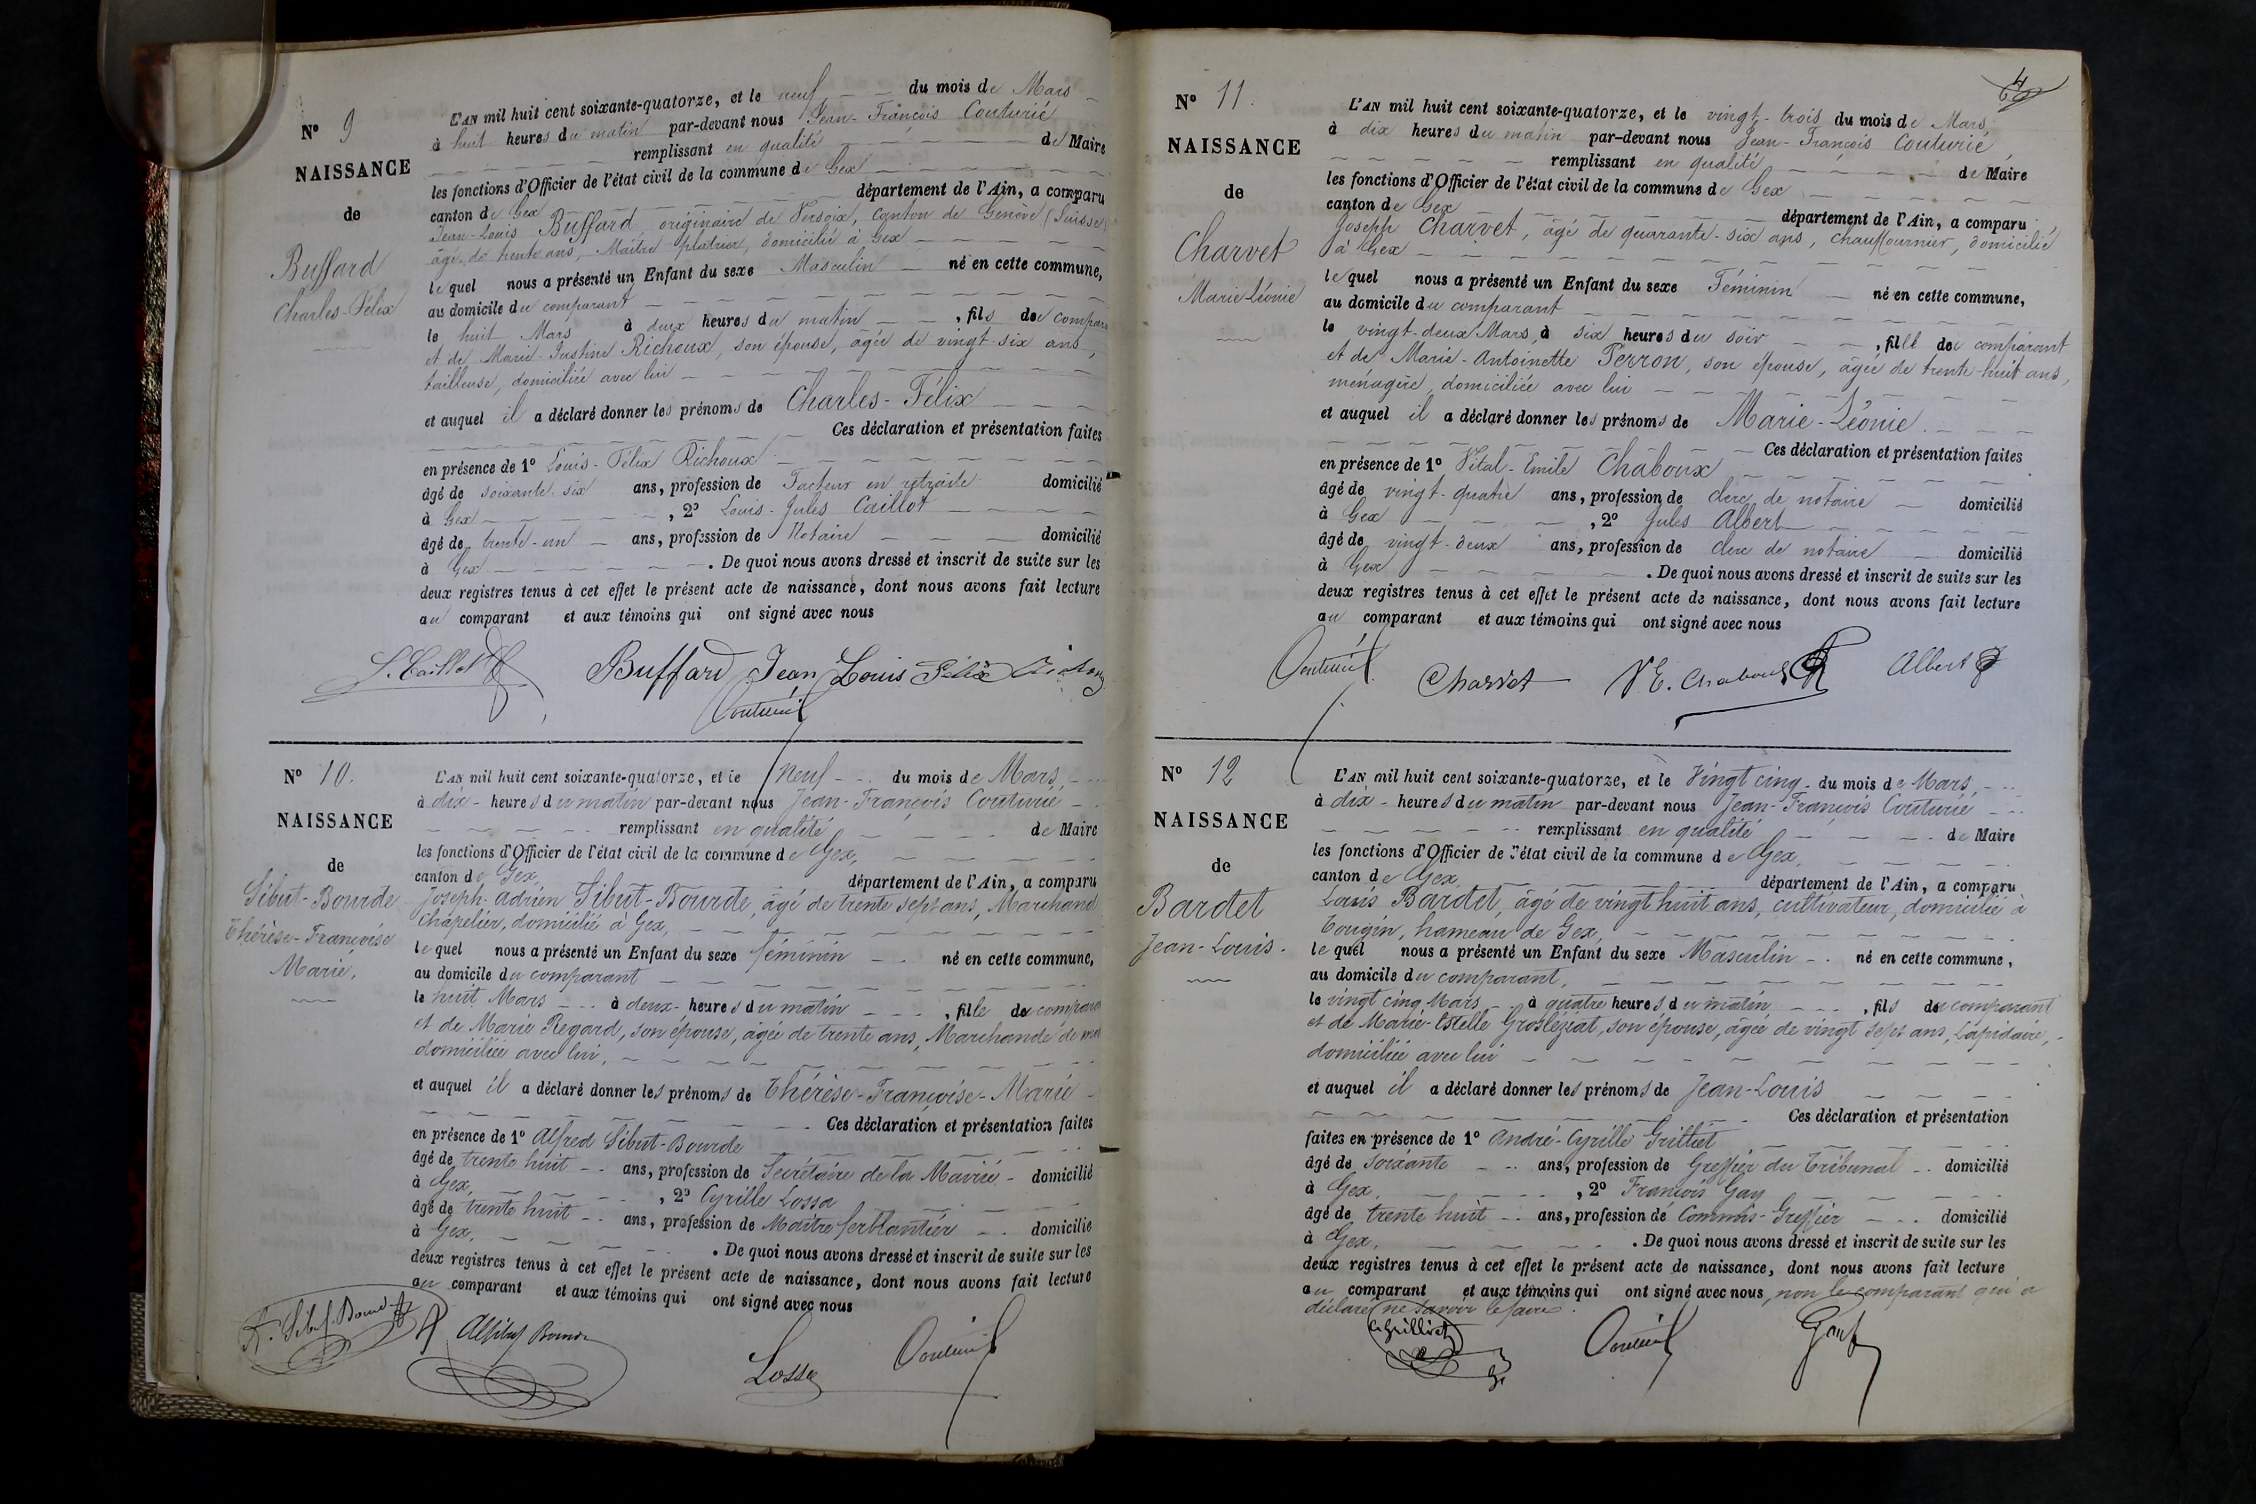 N° 9
NAISSANCE
de
Buffard
Charles-Félix
L'AN mil huit cent soixante-quatorze, et le neuf du mois de Mars
à huit heures du matin par-devant nous Jean-François Couturié
remplissant en qualité de Maire
les fonctions d'Officier de l'état civil de la commune de Gex
canton de Gex département de l'Ain, a comparu
Jean-Louis Buffard, originaire de Versoix, Canton de Genève (Suisse)
âgé de trente ans, Maître platrier, domicilié à Gex
lequel nous a présenté un Enfant du sexe Masculin né en cette commune,
au domicile du comparant
le huit Mars à deux heures du matin, fils du compara
et de Marie-Justine Richoux, son épouse, âgée de vingt-six ans,
tailleuse, domiciliée avec lui
et auquel il a déclaré donner les prénoms de Charles-Félix
Ces déclaration et présentation faites
en présence de 1° Louis-Félix Richoux
âgé de soixante-six ans, profession de Facteur en retraite domicilié
à Gex, 2° Louis-Jules Caillot
âgé de trente-un ans, profession de Notaire domicilié
à Gex. De quoi nous avons dressé et inscrit de suite sur les
deux registres tenus à cet effet le présent acte de naissance, dont nous avons fait lecture
au comparant et aux témoins qui ont signé avec nous
J. Caillot Buffard Jean Louis Félix Richoux
Couturié
N° 10.
NAISSANCE
de
Sibut-Bourde
Thérèse-Françoise
Marie,
L'AN mil huit cent soixante-quatorze, et le Neuf du mois de Mars,
à dix heures du matin par-devant nous Jean-François Couturié
remplissant en qualité de Maire
les fonctions d'Officier de l'état civil de la commune de Gex,
canton de Gex, département de l'Ain, a comparu
Joseph-Adrien Sibut-Bourde, âgé de trente sept ans, Marchand
Chapelier, domicilié à Gex,
lequel nous a présenté un Enfant du sexe féminin né en cette commune,
au domicile du comparant
le huit Mars à deux heures du matin, fille du compara
et de Marie Regard, son épouse, âgée de trente ans, Marchande de mo
domiciliée avec lui,
et auquel il a déclaré donner les prénoms de Thérèse-Françoise-Marie
Ces déclaration et présentation faites
en présence de 1° Alfred Sibut-Bourde
âgé de trente huit ans, profession de Secrétaire de la Mairie domicilié
à Gex, 2° Cyrille Lossa
âgé de trente huit ans, profession de Maître ferblantier domicilié
à Gex. De quoi nous avons dressé et inscrit de suite sur les
deux registres tenus à cet effet le présent acte de naissance, dont nous avons fait lecture
au comparant et aux témoins qui ont signé avec nous
Sibut-Bourde Lossa Couturié
N° 11.
NAISSANCE
de
Charvet
Marie-Léonie
L'AN mil huit cent soixante-quatorze, et le vingt-trois du mois de Mars,
à dix heures du matin par-devant nous Jean-François Couturié,
remplissant en qualité de Maire
les fonctions d'Officier de l'état civil de la commune de Gex
canton de Gex département de l'Ain, a comparu
Joseph Charvet, âgé de quarante-six ans, chauffournier, domicilié
à Gex
lequel nous a présenté un Enfant du sexe Féminin né en cette commune,
au domicile du comparant
le vingt-deux Mars, à six heures du soir, fille du comparant
et de Marie-Antoinette Perron, son épouse, âgée de trente-huit ans,
ménagère, domiciliée avec lui
et auquel il a déclaré donner les prénoms de Marie-Léonie.
Ces déclaration et présentation faites
en présence de 1° Vital-Emile Chaboux
âgé de vingt-quatre ans, profession de clerc de notaire domicilié
à Gex, 2° Jules Albert
âgé de vingt-deux ans, profession de clerc de notaire domicilié
à Gex. De quoi nous avons dressé et inscrit de suite sur les
deux registres tenus à cet effet le présent acte de naissance, dont nous avons fait lecture
au comparant et aux témoins qui ont signé avec nous
Couturié Charvet V E. Chaboux Albert
N° 12
NAISSANCE
de
Bardet
Jean-Louis.
L'AN mil huit cent soixante-quatorze, et le Vingt cinq du mois de Mars,
à dix heures du matin par-devant nous Jean-François Couturié
remplissant en qualité de Maire
les fonctions d'Officier de l'état civil de la commune de Gex,
canton de Gex département de l'Ain, a comparu
Louis Bardet, âgé de vingt huit ans, cultivateur, domicilié à
Tougin, hameau de Gex,
lequel nous a présenté un Enfant du sexe Masculin né en cette commune,
au domicile du comparant,
le vingt cinq Mars à quatre heures du matin, fils du comparant
et de Marie-Estelle Grosléziat, son épouse, âgée de vingt sept ans, Lapidaire,
domiciliée avec lui
et auquel il a déclaré donner les prénoms de Jean-Louis
Ces déclaration et présentation
faites en présence de 1° André-Cyrille Grilliet
âgé de soixante ans, profession de Greffier du Tribunal domicilié
à Gex, 2° François Gay
âgé de trente huit ans, profession de Commis-Greffier domicilié
à Gex. De quoi nous avons dressé et inscrit de suite sur les
deux registres tenus à cet effet le présent acte de naissance, dont nous avons fait lecture
au comparant et aux témoins qui ont signé avec nous, non le comparant qui a
déclaré ne savoir le faire.
Grilliet Couturié Gay